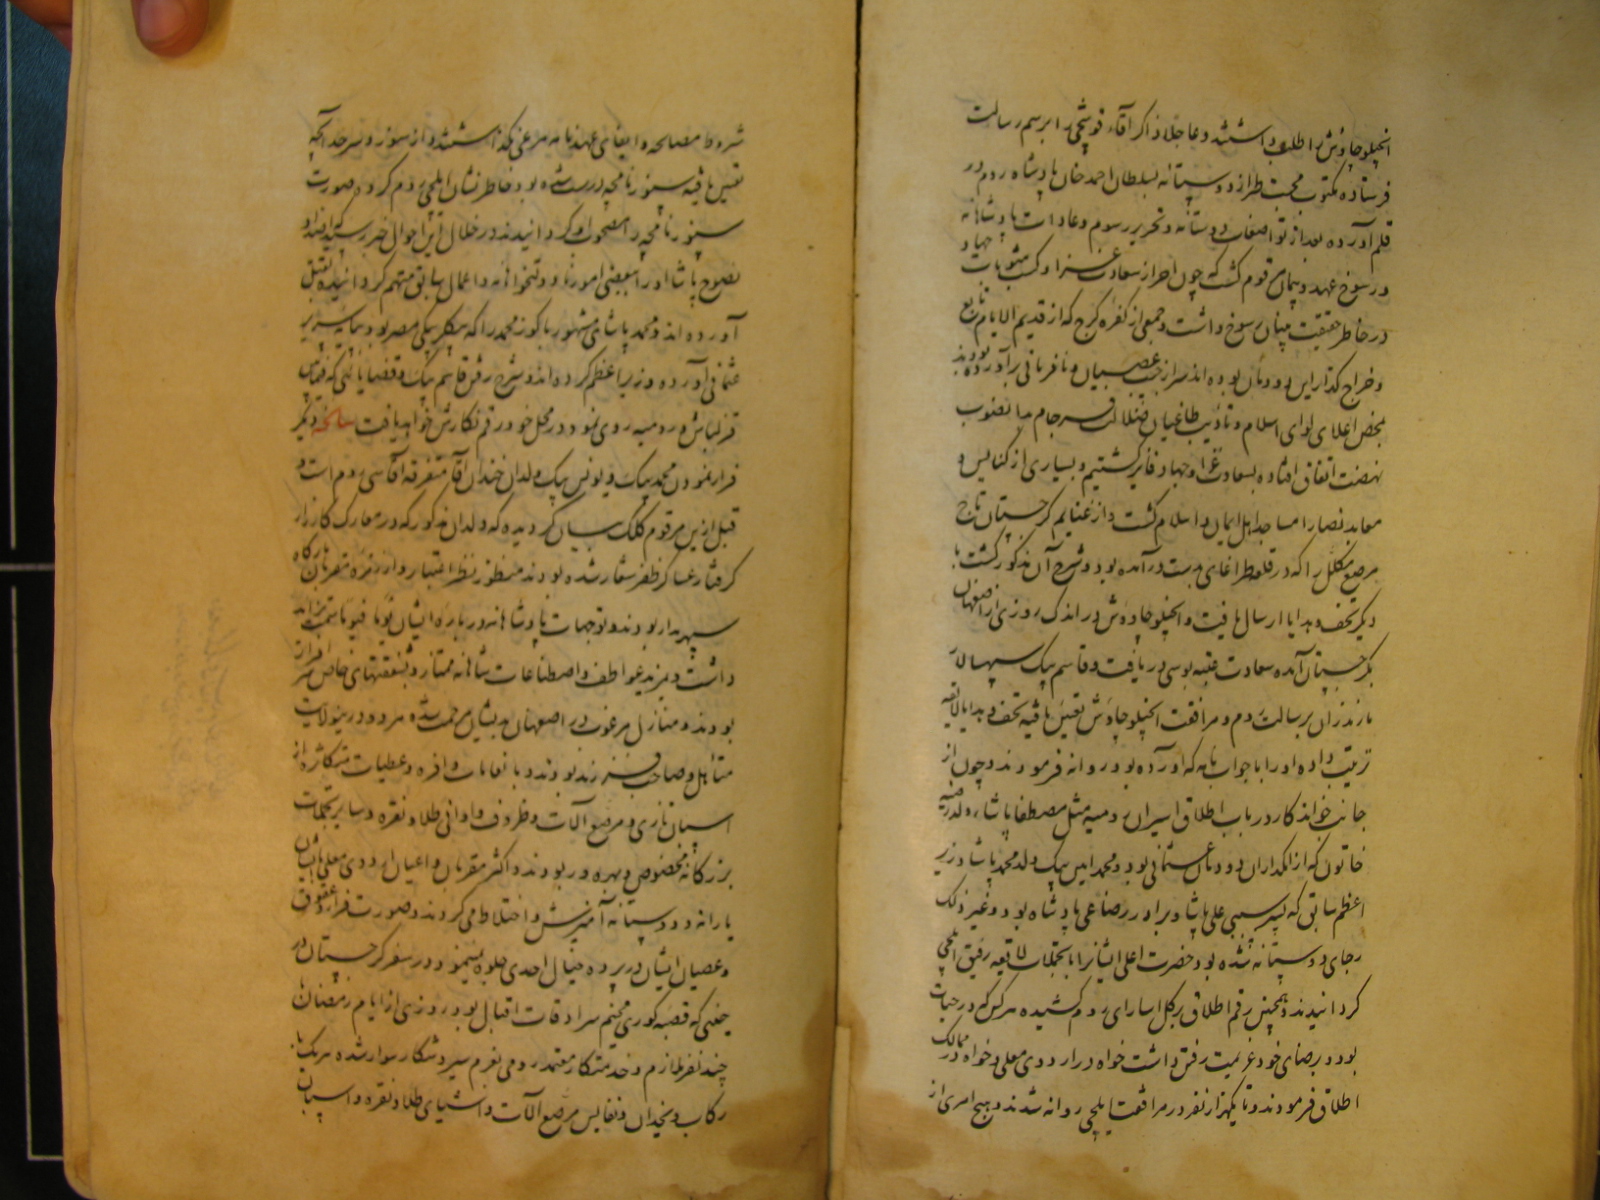 انجیلو چاوش را طلب داشتند و عاجلا ذاکر آقاء قوشچی را برسم رسالت
فرستاده مکتوب محبت طراز دوستانه بسلطان احمد خان پادشاه روم در
قلم آورده بعد از تواضعات دوستانه و تحریر رسوم و عادات پادشاهانه
و رسوخ عهد و پیمان مرقوم گشت که چون احراز سعادت غزا و کسب مثوبات جهاد
در خاطر حقیقت بنیان رسوخ داشت و جمعی از کفره گرج که از قدیم الایام تابع
و خراج گذار این دودمان بوده اند سر از جیب عصیان و نافرمانی برآورده بودند
بمحض اعلای لوای اسلام و تادیب طاغیان ضلالت فرجام بدانصوب
نهضت اتفاق افتاده بسعادت غزا و جهاد فایز گشتیم و بسیاری از کنایس و
معابد نصارا مساجد اهل ایمان و اسلام گشت و از غنایم گرجستان تاج
مرصع مکلل را که در قلعه طراغای بدست درآمده بود و شرح آن مذکور گشت با
دیگر تحف و هدایا ارسال یافت و انجیلو چاوش در اندک روزی از اصفهان
بگرجستان آمده سعادت عتبه بوسی دریافت و قاسم بیک سپهسالار
مازندران برسالت روم و مرافقت انجیلو چاوش تعیین یافته تحف و هدایا لایقه
ترتیب داده او را با جواب نامه که آورده بود روانه فرمودند و چون از
جانب خواندکار در باب اطلاق اسیران رومیه مثل مصطفا پاشا ولد رضیه
خاتون که از نمکداران دودمان عثمانی بود و محمد امین بیک ولد محمد پاشا وزیر
اعظم سابق که پسر سببی علی پاشا و برادر رضاعی پادشاه بود و غیر ذلک
رجای دوستانه شده بود حضرت اعلی ایشانرا با تجملات لایقه رفیق ایلچی
گردانیدند و همچنین رقم اطلاق بر کل اسارای روم کشیده هر کس که در حیات
بود و برضای خود عزیمت رفتن داشت خواه در اردوی معلی و خواه در ممالک
اطلاق فرمودند و تا یکهزار نفر در مرافقت ایلچی روانه شدند و هیچ امری از
شروط مصالحه و ایفای عهد نامه مرعی نگذاشتند و از سنور و سرحد آنچه
تعیین یافته سنور نامچه درست شده بود خاطر نشان ایلچی روم کرده صورت
سنور نامچه را مصحوب او گردانیدند در خلال این احوال خبر رسید که
نصوح پاشا را ببعضی امور نادولتخواهانه و اعمال سابق متهم گردانیده بقتل
آورده اند و محمد پاشای مشهور باکوز محمد را که بیگلربیگی مصر بود بپایه سریر
عثمانی آورده وزیر اعظم کرده اند و شرح رفتن قاسم بیک و قضایائی که فیمابین
قزلباش و رومیه روی نمود در محل خود رقم نگارش خواهد یافت سانحه دیگر
فرار نمودن محمد بیک و یونس بیک ولدان خندان آقا متفرقه آقاسی روم است
قبل ازین مرقوم کلک بیان گردیده که ولدان مذکور که در معارک کارزار
گرفتار عساکر ظفر شعار شده بودند منظور نظر اعتبار و از زمره مقربان بارگاه
سپهر مدار بودند و توجهات پادشاهانه درباره ایشان یوما فیوما سمت تزاید
داشت و بمزید عواطف و اصطناعات شاهانه ممتاز و بشفقتهای خاص سرافراز
بودند و منازل مرغوب در اصفهان بدیشان مرحمت شده مرد و درینولایت
متاهل و صاحب فرزند بودند و با انعامات وافره و عطیات متکاثره از
اسبان تازی و مرصع آلات و ظروف و اوانی طلا و نقره و سایر تجملات
بزرگانه مخصوص و بهره ور بودند و اکثر مقربان و اعیان اردوی معلی با ایشان
یارانه و دوستانه آمیزش و اختلاط میکردند و صورت فرار و عقوق
و عصیان ایشان در پرده خیال احدی جلوه نمینمود در سفر گرجستان در
حینی که قصبه کوری مخیم سرادقات اقبال بود روزی از ایام رمضان با
چند نفر ملازم و خدمتکار معتمد رومی بعزم سیر و شکار سوار شده هر یک با
رکاب و یخدان و نفایس مرصع آلات و اشیای طلا و نقره و اسبان